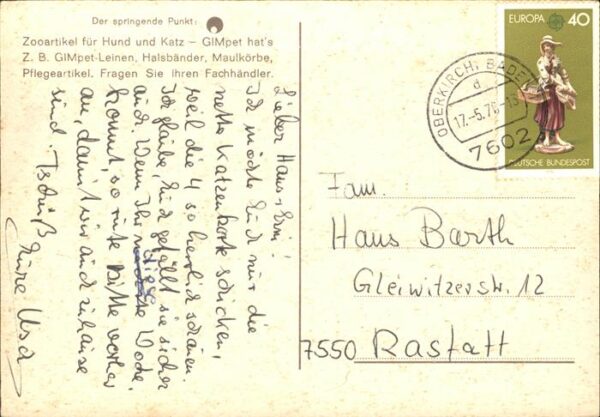 Der springende Punkt:
Zooartikel für Hund und Katz – GIMpet hat's
Z. B. GIMpet-Leinen, Halsbänder, Maulkörbe,
Pflegeartikel. Fragen Sie Ihren Fachhändler.
Lieber Hans + Erni!
Ich möchte Euch nur die
nette Katzenkarte schicken,
weil die 4 so herrlich schauen.
Ich glaube, Euch gefällt sie sicher
auch. Wenn Ihr diese Woche
kommt, so rufe bitte vorher
an, damit wir auch zuhause
sind. Tschüß
Eure Usch
EUROPA 40
DEUTSCHE BUNDESPOST
OBERKIRCH, BADEN
d
17.-5.76-13
7602
Fam.
Hans Barth
Gleiwitzerstr. 12
7550 Rastatt